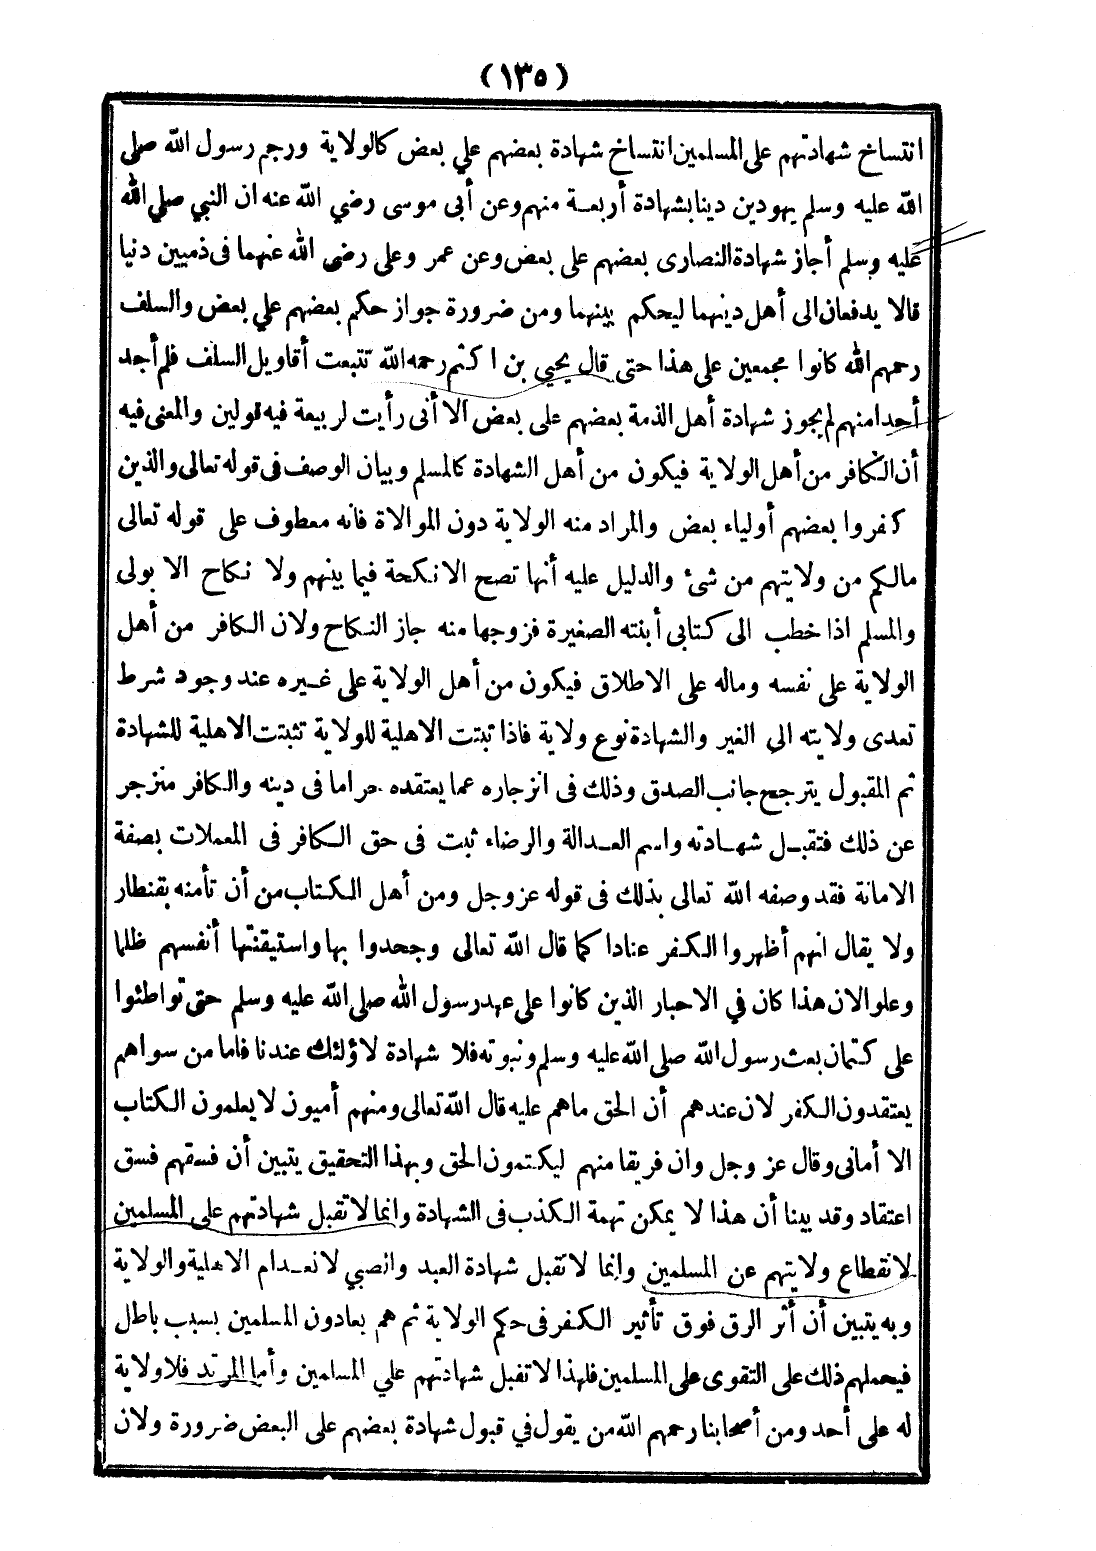 (١٣٥)
انتساخ شهادتهم على المسلمين انتساخ شهادة بعضهم علي بعض كالولاية ورجم رسول الله صلى
الله عليه وسلم يهودين دينا بشهادة أربعة منهم وعن أبى موسى رضي الله عنه ان النبي صلي الله
عليه وسلم أجاز شهادة النصارى بعضهم على بعض وعن عمر وعلى رضى الله عنهما فى ذميين دنيا
قالا يدفعان الى أهل دينهما ليحكم بينهما ومن ضرورة جواز حكم بعضهم علي بعض والسلف
رحمهم الله كانوا مجمعين على هذا حتى قال يحيي بن اكثم رحمه الله تتبعت أقاويل السلف فلم أجد
أحدا منهم لم يجوز شهادة أهل الذمة بعضهم على بعض الا أنى رأيت لربيعة فيه قولين والمعنى فيه
أن الكافر من أهل الولاية فيكون من أهل الشهادة كالمسلم وبيان الوصف فى قوله تعالى والذين
كفروا بعضهم أولياء بعض والمراد منه الولاية دون الموالاة فانه معطوف على قوله تعالى
مالكم من ولايتهم من شئ والدليل عليه أنها تصح الانكحة فيما بينهم ولا نكاح الا بولى
والمسلم اذا خطب الى كتابى أبنته الصغيرة فزوجها منه جاز النكاح ولان الكافر من أهل
الولاية على نفسه وماله على الاطلاق فيكون من أهل الولاية على غيره عند وجود شرط
تعدى ولايته الي الغير والشهادة نوع ولاية فاذا ثبتت الاهلية للولاية تثبتت الاهلية للشهادة
ثم المقبول يترجح جانب الصدق وذلك فى انزجاره عما يعتقده حراما فى دينه والكافر منزجر
عن ذلك فتقبل شهادته واسم العدالة والرضاء ثبت فى حق الكافر فى المعملات بصفة
الامانة فقد وصفه الله تعالى بذلك فى قوله عز وجل ومن أهل الكتاب من أن تأمنه بقنطار
ولا يقال انهم أظهروا الكفر عنادا كما قال الله تعالى وجحدوا بها واستيقنتها أنفسهم ظلما
وعلوا لان هذا كان في الاحبار الذين كانوا على عهد رسول الله صلى الله عليه وسلم حتى تواطئوا
على كتمان بعث رسول الله صلى الله عليه وسلم ونبوته فلا شهادة لاؤلئك عندنا فاما من سواهم
يعتقدون الكفر لان عندهم أن الحق ماهم عليه قال الله تعالى ومنهم أميون لا يعلمون الكتاب
الا أمانى وقال عز وجل وان فريقا منهم ليكتمون الحق وبهذا التحقيق يتبين أن فسقهم فسق
اعتقاد وقد بينا أن هذا لا يمكن تهمة الكذب فى الشهادة وانما لا تقبل شهادتهم على المسلمين
لانقطاع ولايتهم عن المسلمين وانما لا تقبل شهادة العبد والصبي لانعدام الاهلية والولاية
وبه يتبين أن أثر الرق فوق تأثير الكفر فى حكم الولاية ثم هم يعادون المسلمين بسبب باطل
فيحملهم ذلك على التقوى على المسلمين فلهذا لا تقبل شهادتهم علي المسلمين وأما المرتد فلا ولاية
له على أحد ومن أصحابنا رحمهم الله من يقول في قبول شهادة بعضهم على البعض ضرورة ولان